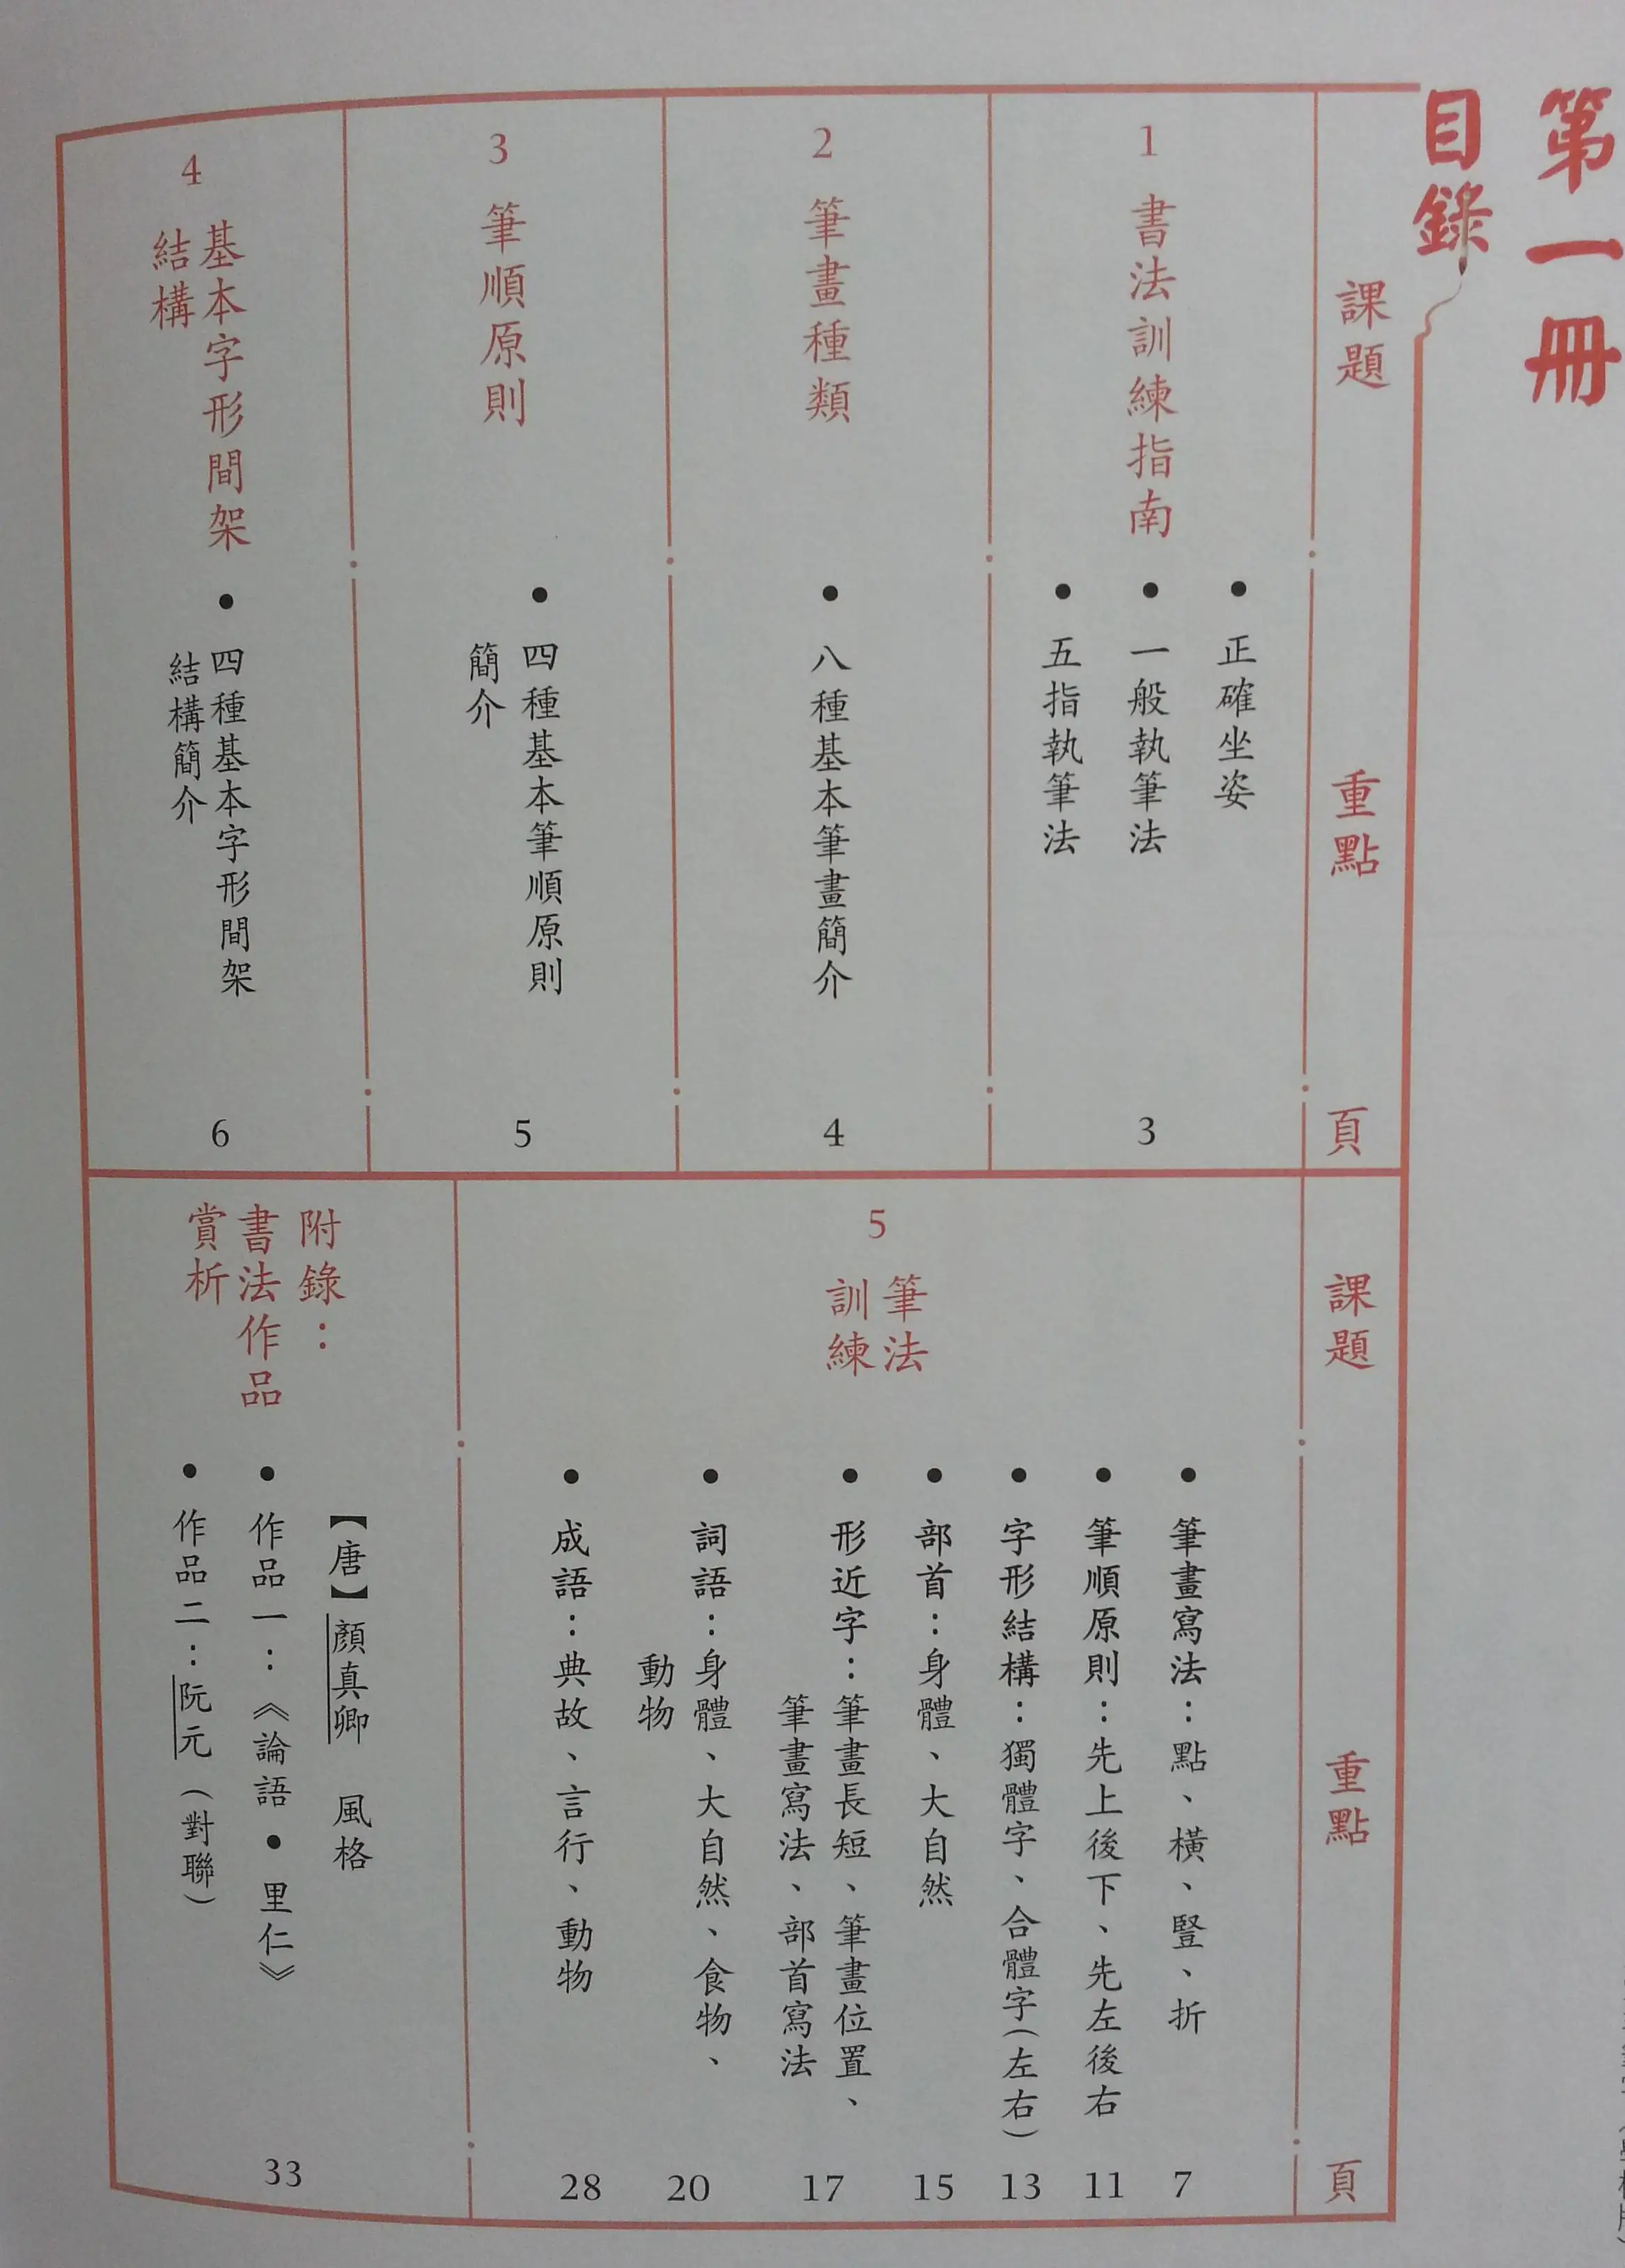 第一冊
目錄
課題
重點
頁
1
書法訓練指南
• 正確坐姿
• 一般執筆法
• 五指執筆法
3
2
筆畫種類
• 八種基本筆畫簡介
4
3
筆順原則
• 四種基本筆順原則
簡介
5
4
基本字形間架
結構
• 四種基本字形間架
結構簡介
6
課題
重點
頁
5
筆法
訓練
• 筆畫寫法：點、橫、豎、折
7
• 筆順原則：先上後下、先左後右
11
• 字形結構：獨體字、合體字(左右)
13
• 部首：身體、大自然
15
• 形近字：筆畫長短、筆畫位置、
筆畫寫法、部首寫法
17
• 詞語：身體、大自然、食物、
動物
20
• 成語：典故、言行、動物
28
附錄：
書法作品
賞析
【唐】顏真卿 風格
• 作品一：《論語•里仁》
• 作品二：阮元(對聯)
33